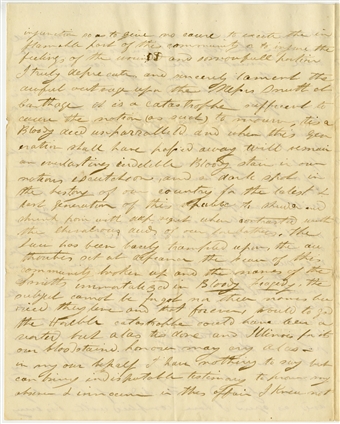 as to give me cause to excite the in
flamable part of the community or to injure the
feelings of the and portion
I truly deprecate and sincerely lament the
awful outrage upon the Messrs Smith at
Carthage it is a catastrophe sufficent to
cause the nation (as such) to mourn, its a
Bloody deed unparralleld and when this gen
eration shall have passed away will remain
an everlasting indelible Bloody stain in our
nations escutcheon and a dark spot in
the history of our country for the latest &
last generation of this republic to shudder and
shrink from with when contrasted with
the deeds of our forefathers, the
Law has been basely trampled upon the au
thorities set at defiance the peace of the
community broken up and the names of the
Smiths immortalized in Bloody tragedy, the
subject cannot be forgot in their names
they live and that forever, would to god
the Horible catastrophe could have been a
verted but alas tis done and Illinois
our bloodstained however may
in my own behalf I have nothing to say but
can bring indisputable testimony to prove my
absence & innocence in this affair I knew not